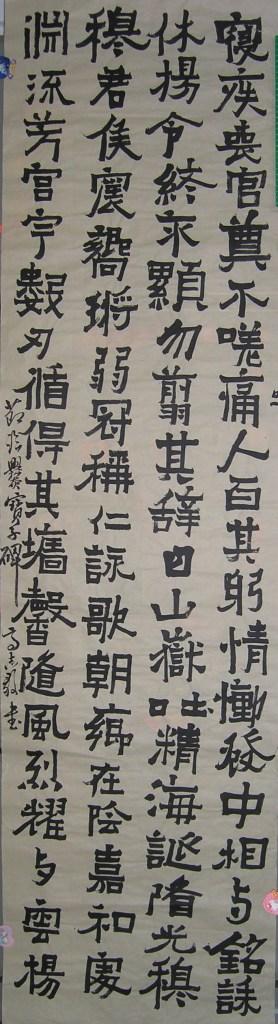 寝疾喪官莫不嗟痛人百其躬情慟發中相与銘誄
休揚令終永顯勿翦其辞曰山嶽吐精海誕陏光穆
穆君侯寔嚮璓弱冠稱仁詠歌朝鄉在陰嘉和處
淵流芳宫宇數刃循得其墻馨隨風烈耀与雲揚
节临爨寳子碑
书